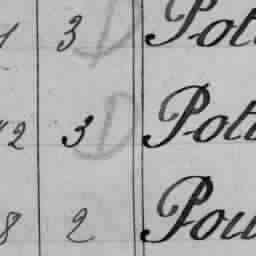 1 3 D Pot
42 3 D Pott
8 2 Pou